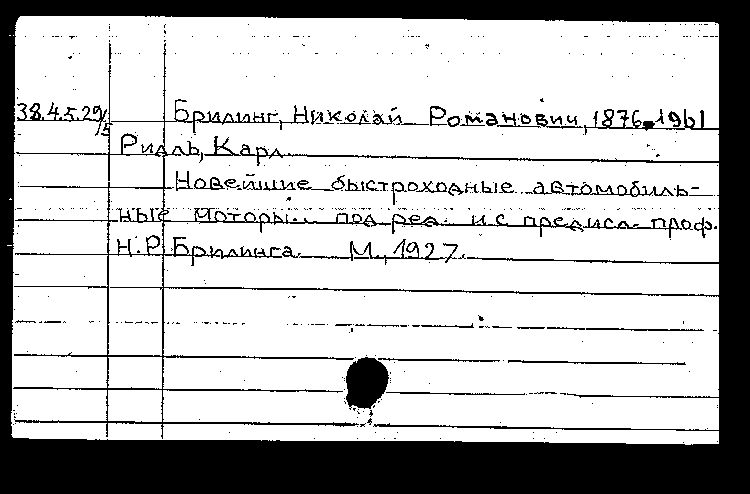 38.4.5.29/5 Брилинг, Николай Романович, 1876-1961
Ридль, Карл.
Новейшие быстроходные автомобиль-
ные моторы... под ред. и с предисл. проф.
Н.Р. Брилинга. М., 1927.